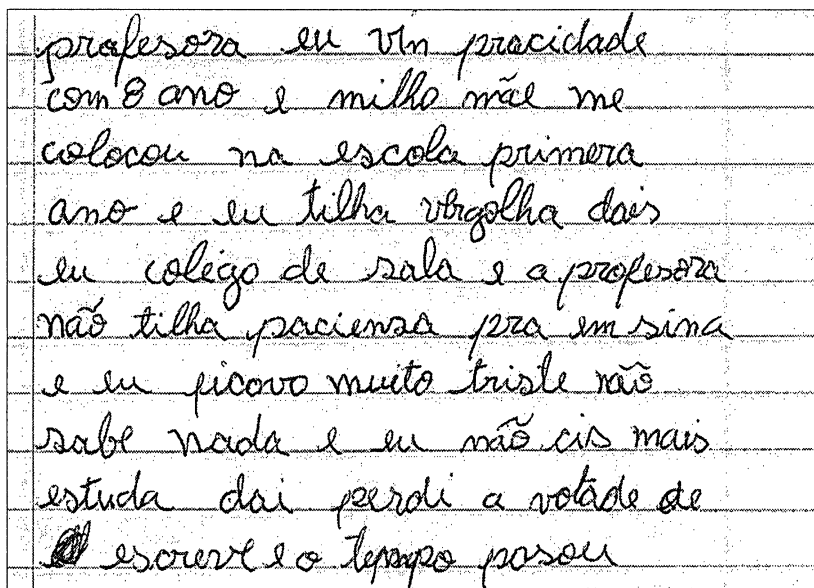 profesora eu vin pracidade
com 8 ano e milha mãe me
colocou na escola primera
ano e eu tilha vergolha dais
eu colégo de sala e a profesora
não tilha paciensa pra em sina
e eu ficava muito triste não
sabe nada e eu não cis mais
estuda dai perdi a votade de
escreve e o tempo pasou